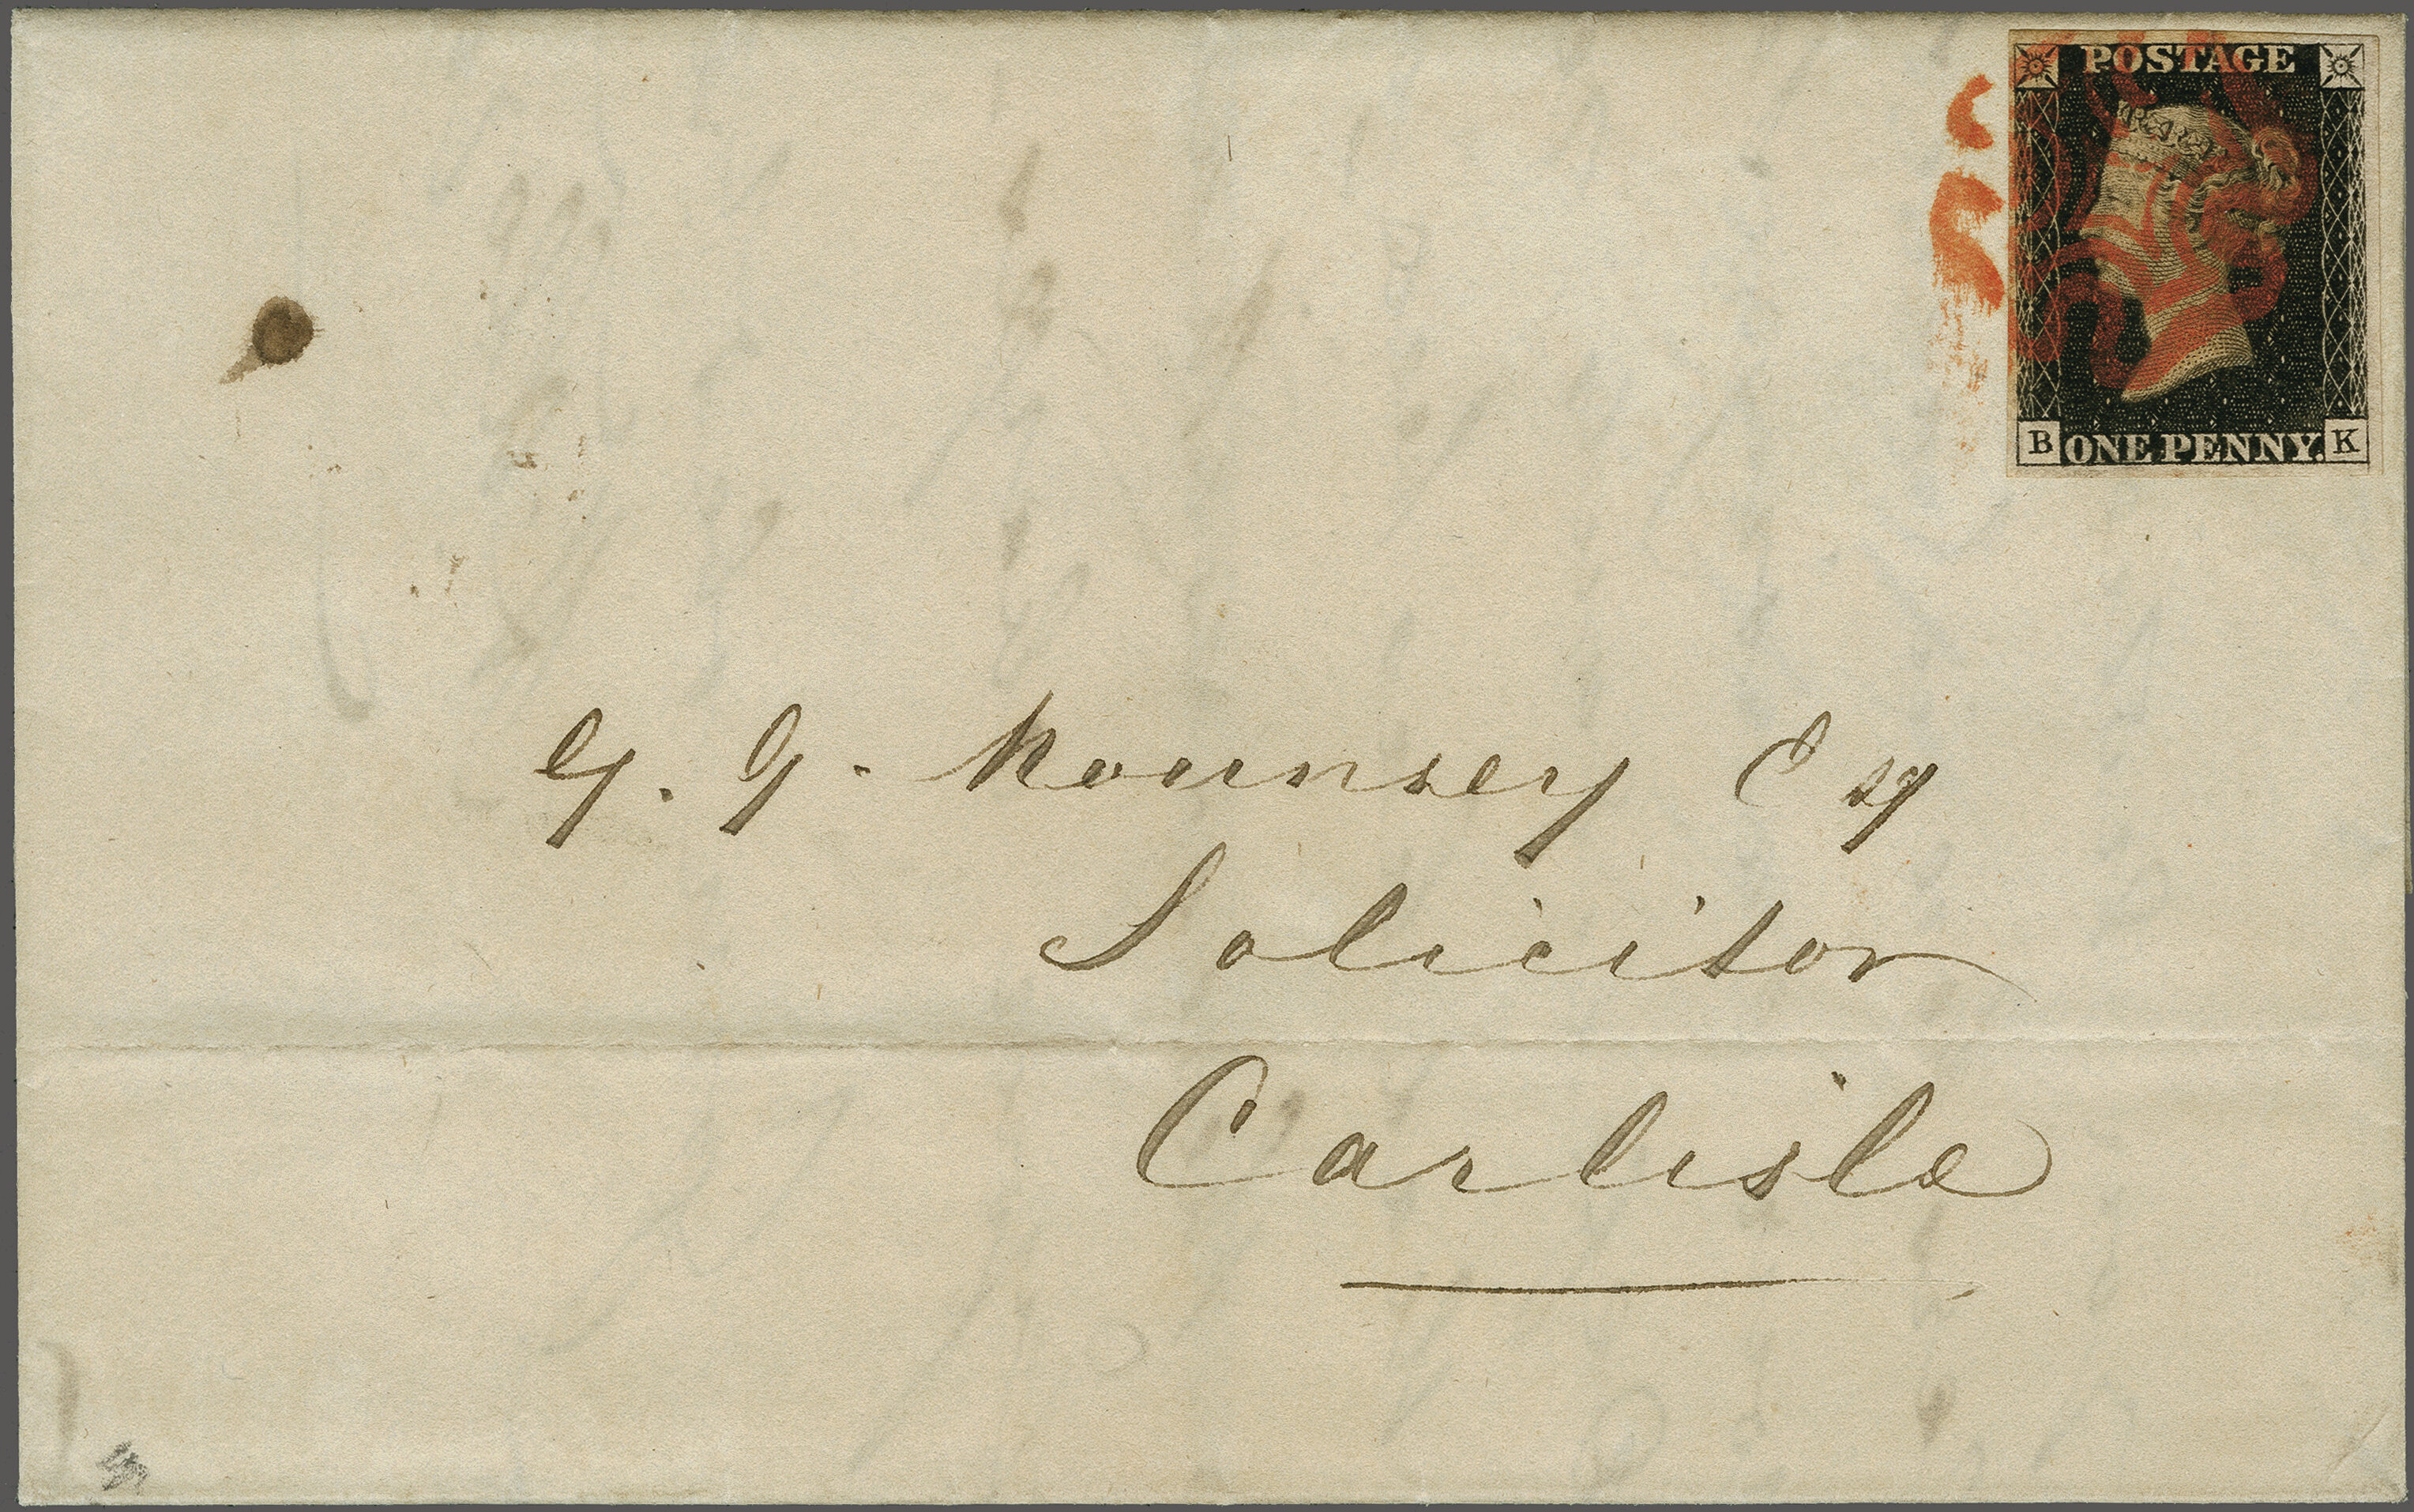 POSTAGE
B ONE PENNY. K
G. G. Mounsey Esq
Solicitor
Carlisle